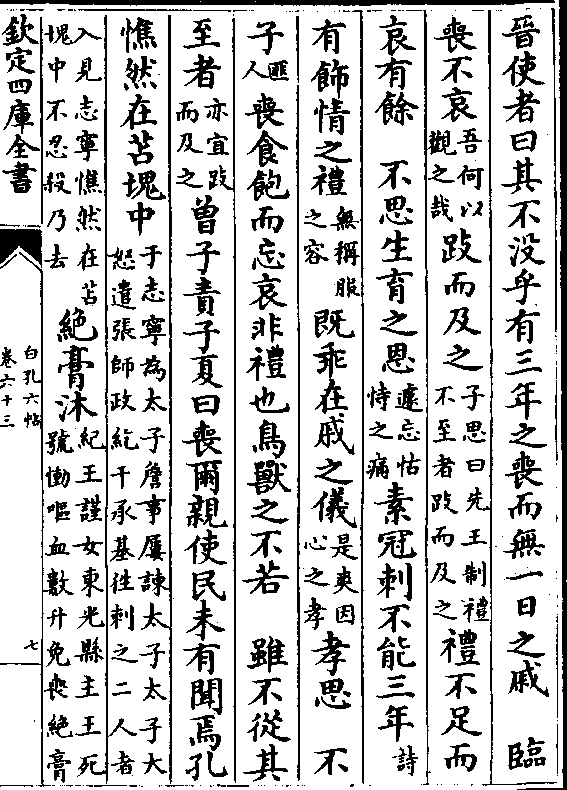 晉使者曰其不没乎有三年之喪而無一日之戚　臨
喪不哀吾何以觀之哉跂而及之子思曰先王制禮不至者跂而及之禮不足而
哀有餘　不思生育之恩遽忘怙恃之痛素冠刺不能三年詩
有飾情之禮無稱服之容既乖在戚之儀是爽因心之孝孝思　不
子匪人喪食飽而忘哀非禮也鳥獸之不若　雖不從其
至者亦宜跂而及之曾子責子夏曰喪爾親使民未有聞焉孔
憔然在苫塊中于志寧為太子詹事屢諫太子太子大怒遣張師政紇干承基往刺之二人者
入見志寧憔然在苫塊中不忍殺乃去絶膏沐紀王謹女東光縣主王死號慟嘔血數升免喪絶膏
欽定四庫全書
白孔六帖
卷六十三
七